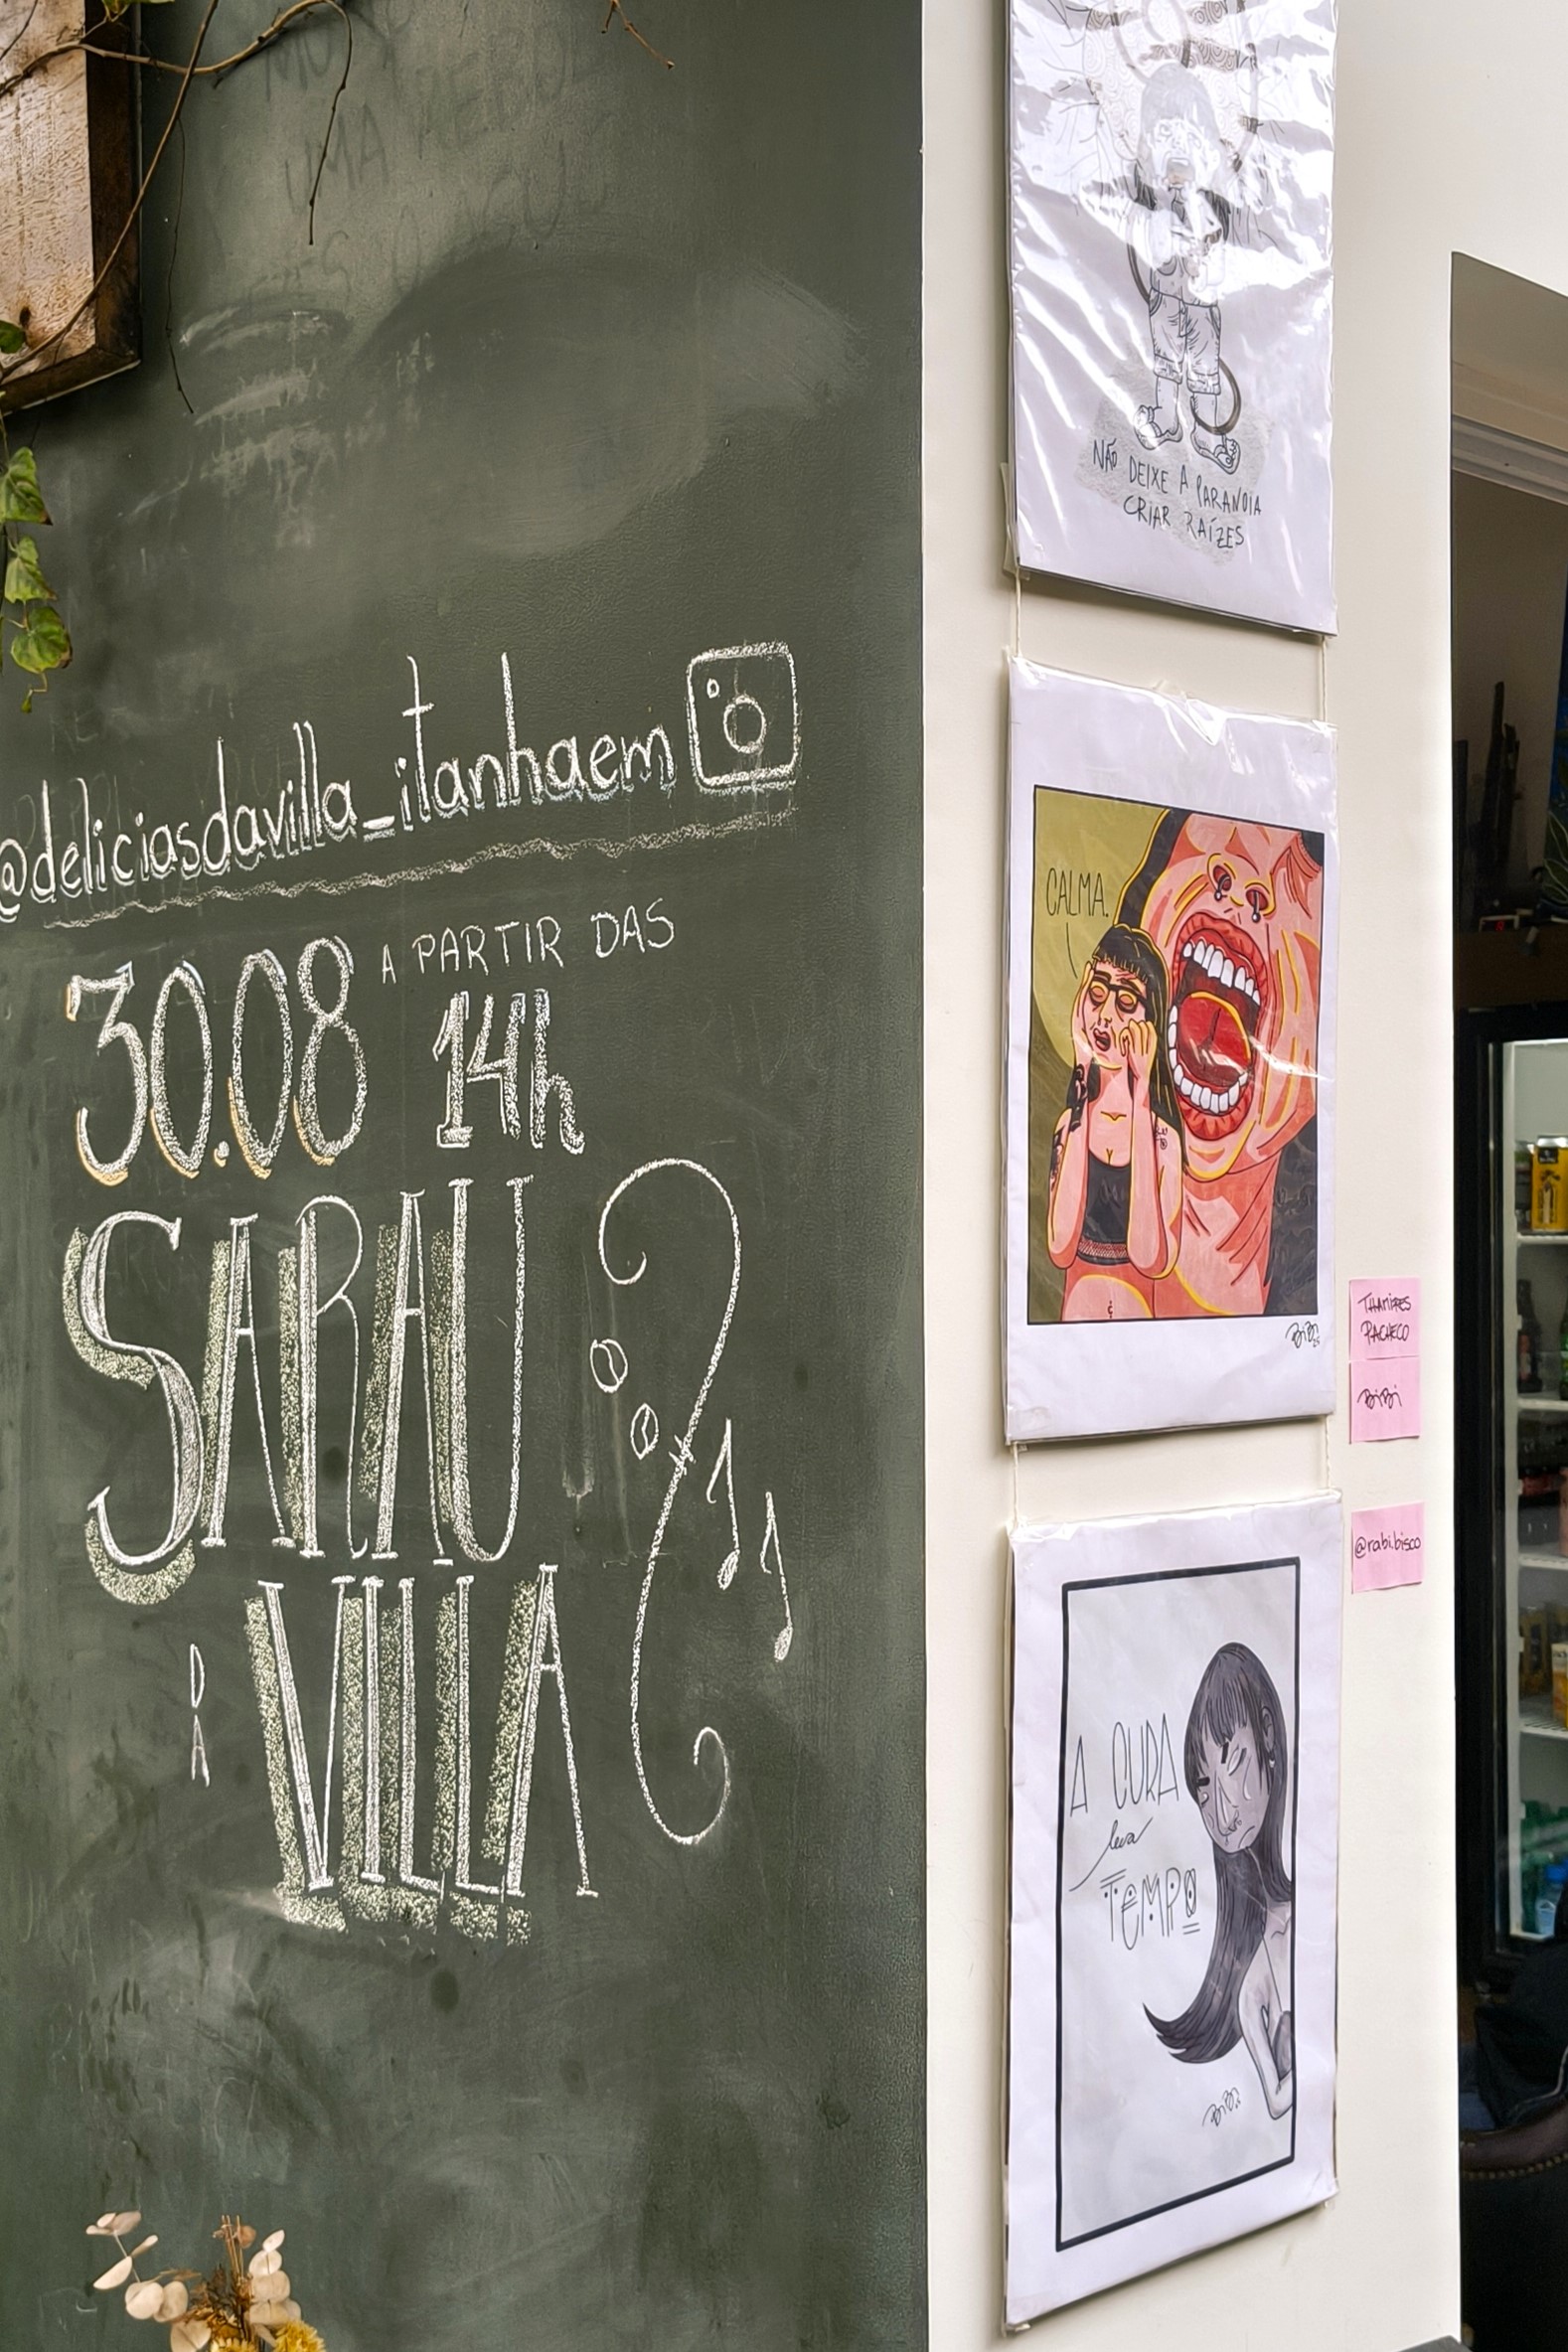 @deliciasdavilla_itanhaem
30.08 A PARTIR DAS
14h
SARAU
DA
VILLA
NÃO DEIXE A PARANOIA
CRIAR RAÍZES
CALMA.
BiBi
THAMIRES
PACHECO
BiBi
@rabi.bisco
A CURA
leva
TEMPO
BiBi